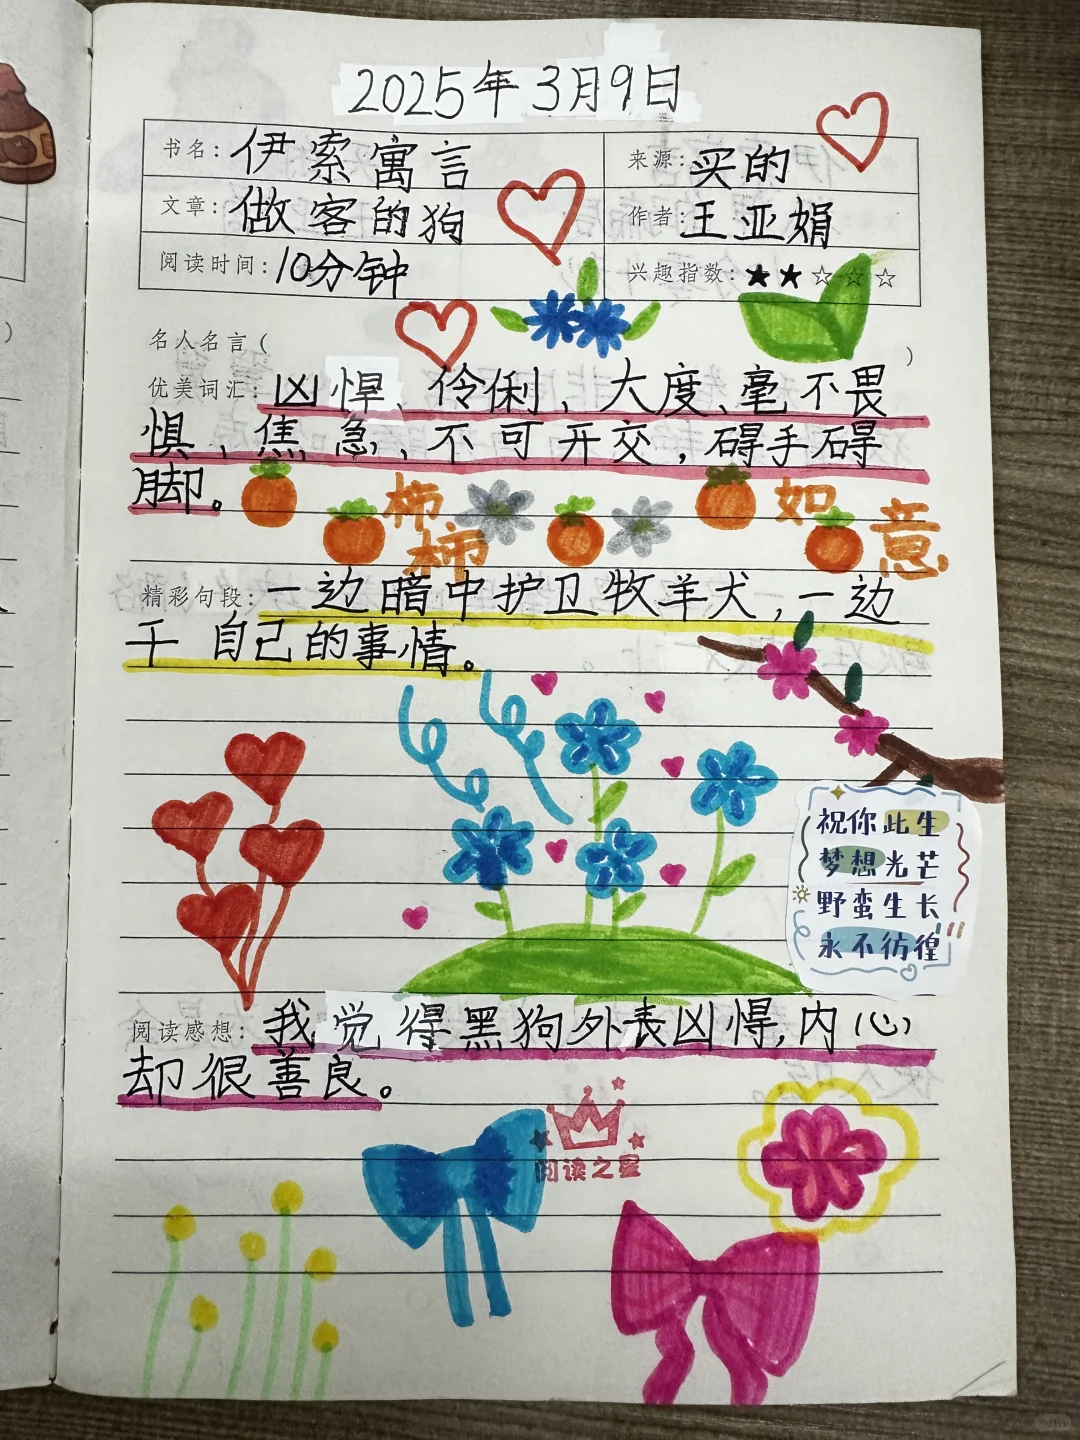 2025年3月9日
书名：伊索寓言 来源：买的
文章：做客的狗 作者：王亚娟
阅读时间：10分钟 兴趣指数：★★☆☆☆
名人名言（ ）
优美词汇：凶悍、伶俐、大度、毫不畏
惧，焦急、不可开交，碍手碍
脚。
柿
柿
如
意
精彩句段：一边暗中护卫牧羊犬，一边
干自己的事情。
祝你此生
梦想光芒
野蛮生长
永不彷徨
阅读感想：我觉得黑狗外表凶悍，内心
却很善良。
阅读之星